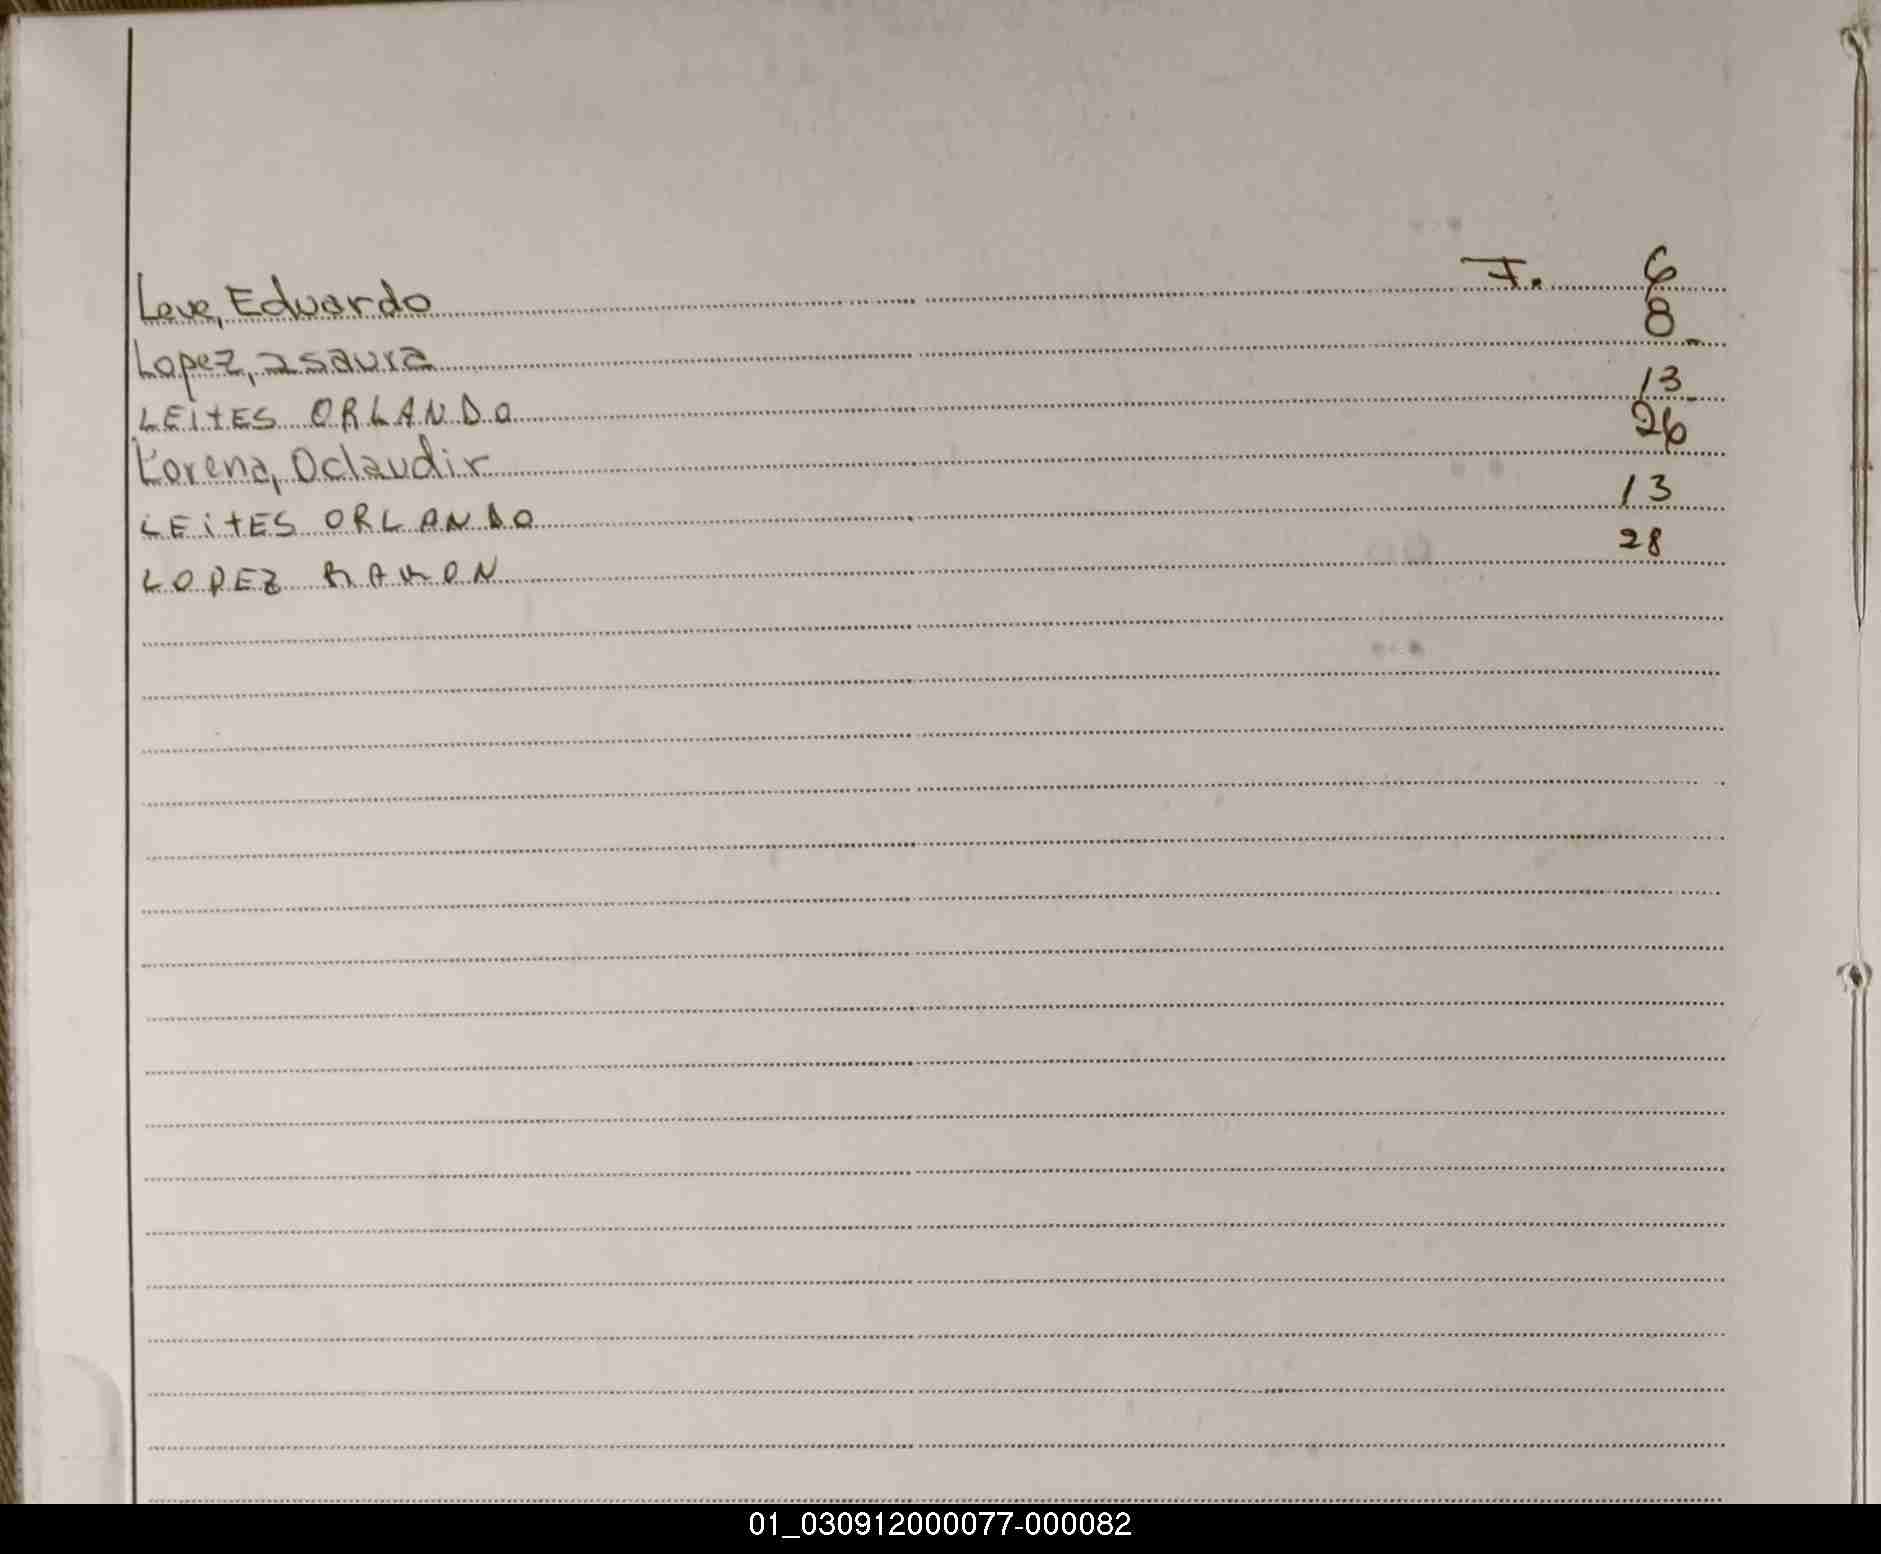 Leve, Eduardo F. 6
Lopez, Isaura 8
LEITES ORLANDO 13
Lorena, Oclaudir 26
LEITES ORLANDO 13
LOPEZ RAMON 28
01_030912000077-000082